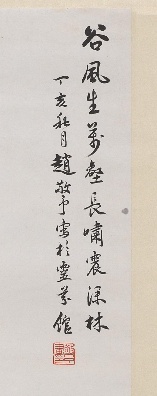 谷風生萬壑長嘯震深林
丁亥秋月趙敬予寫於靈芬館